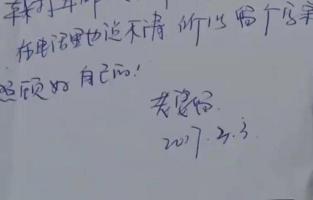 在电话里也说不清 所以留个字条
照顾好自己的!
老婆留
2017.2.3.